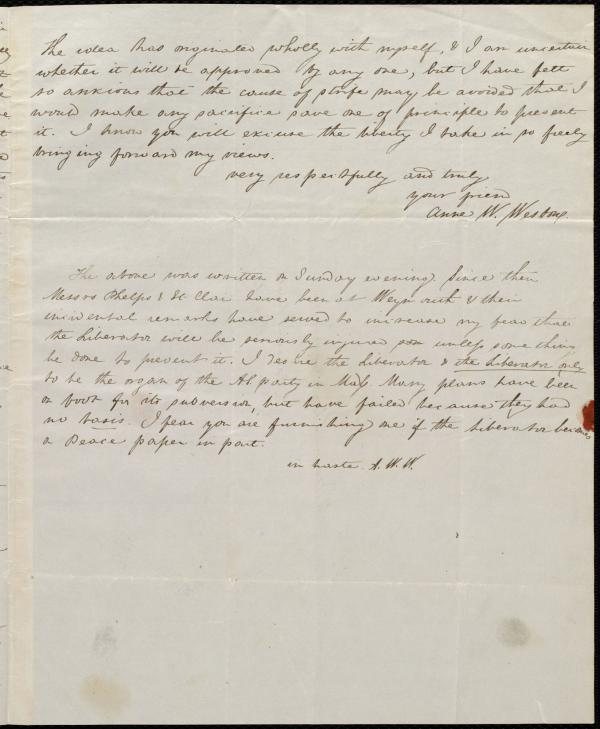 The idea has originated wholly with myself, & I am uncertain
whether it will be approved by any one, but I have felt
so anxious that the cause of strife may be avoided that I
would make any sacrifice save one of principle to present
it. I know you will excuse the liberty I take in so freely
bringing forward my views.
very respectfully and truly
your friend
Anne W. Weston.
The above was written on Sunday evening. Since then
Messrs Phelps & St Clair have been at Weymouth & their
incidental remarks have served to increase my fear that
the Liberator will be seriously injured soon unless something
be done to prevent it. I desire the Liberator & the Liberator only
to be the organ of the A.S. party in Mass. Many plans have been
on foot for its subversion, but have failed because they had
no basis. I fear you are furnishing one if the Liberator becomes
a Peace paper in part.
in haste A. W. W.